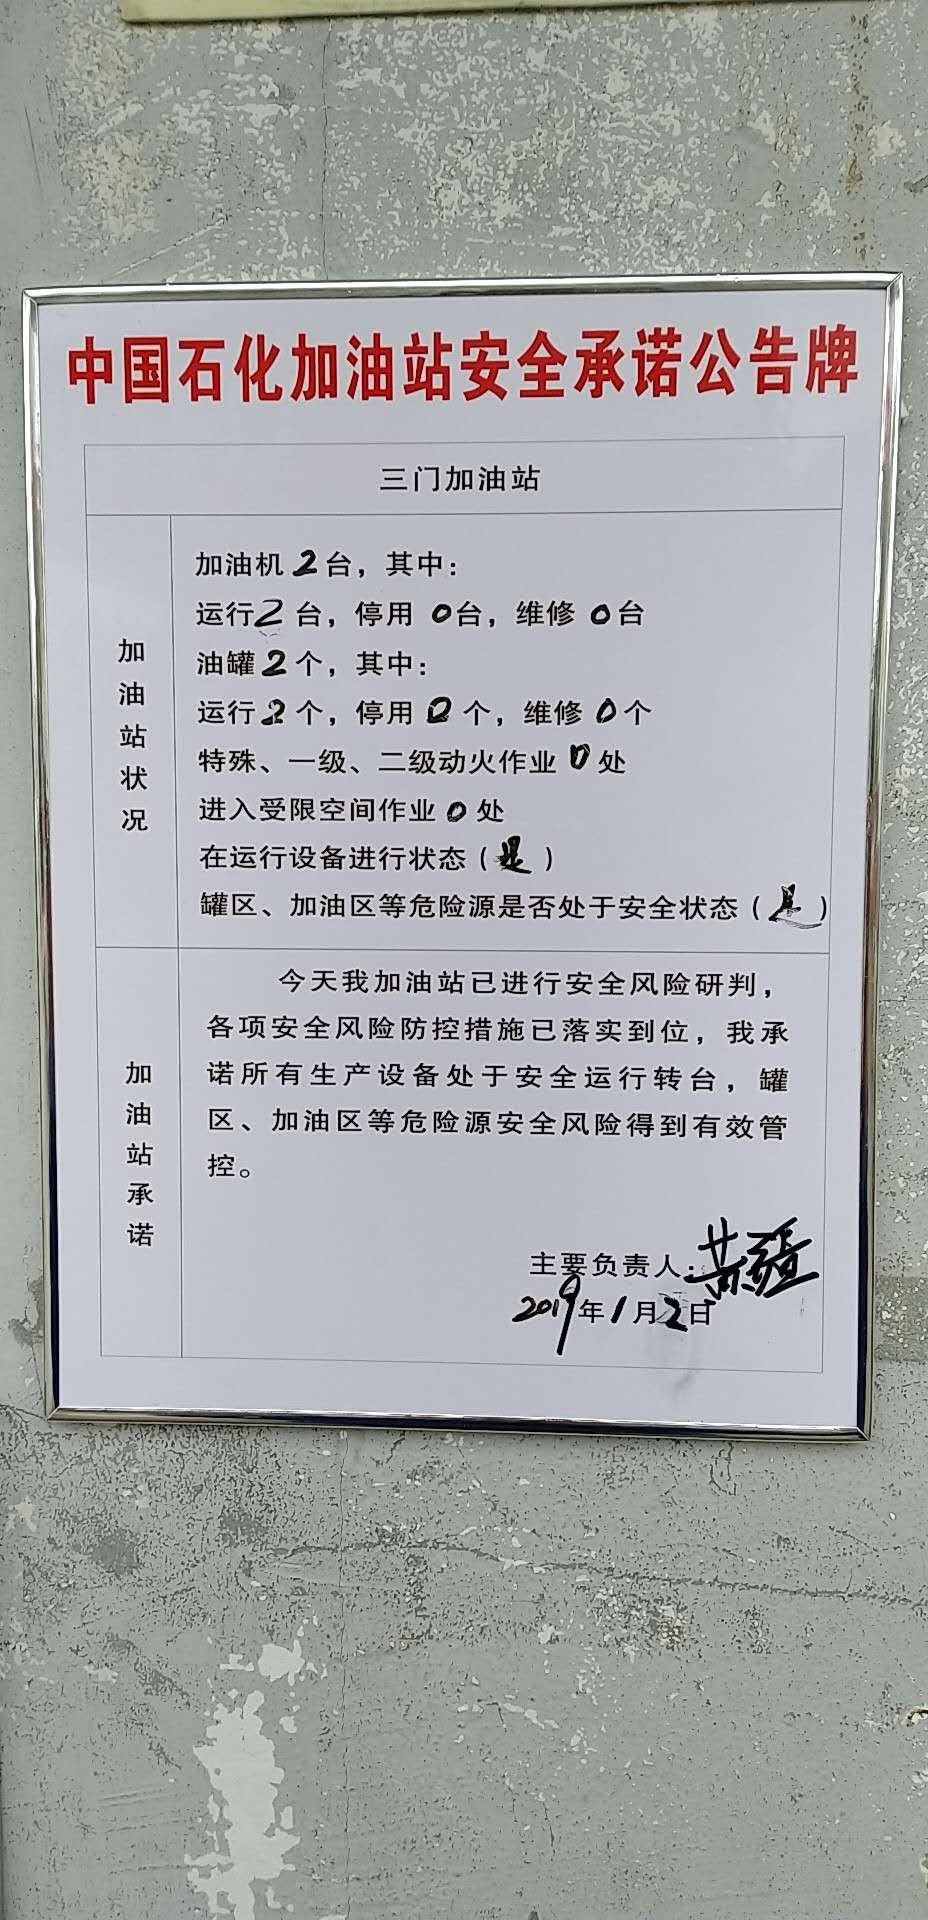 中国石化加油站安全承诺公告牌
三门加油站
加油站状况
加油机2台，其中：
运行2台，停用0台，维修0台
油罐2个，其中：
运行2个，停用0个，维修0个
特殊、一级、二级动火作业0处
进入受限空间作业0处
在运行设备进行状态（是）
罐区、加油区等危险源是否处于安全状态（是）
加油站承诺
今天我加油站已进行安全风险研判，
各项安全风险防控措施已落实到位，我承
诺所有生产设备处于安全运行转台，罐
区、加油区等危险源安全风险得到有效管
控。
主要负责人：
2019年1月2日